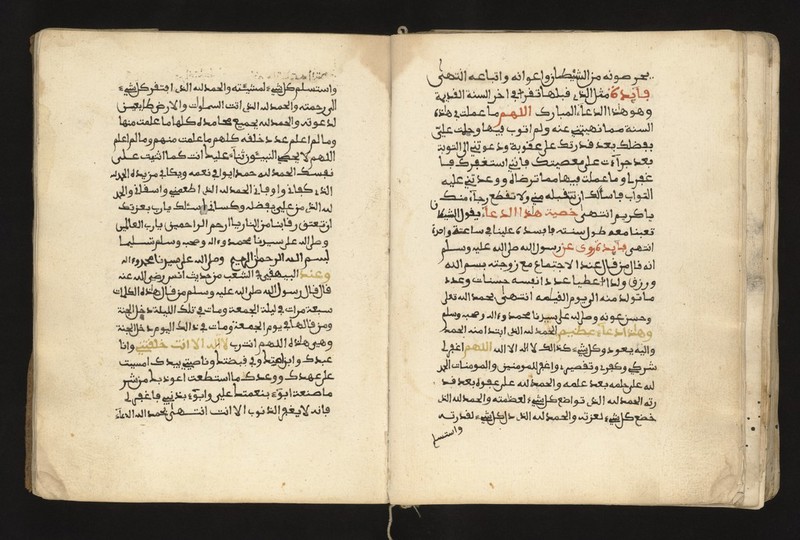 يحرصونه من الشيطان واعوانه واتباعه انتهى
فايدة مثل الذي قبلها تقرأ في اخر السنة القمرية
وهو هذا الدعاء المبارك اللهم ما عملت في هذه
السنة مما نهيتني عنه ولم اتوب فيها وحلمت علي
بفضلك بعد قدرتك على عقوبة ودعوتني الى التوبة
بعد جرآءت على معصيتك فاني استغفرك فا
غفر لي وما عملت فيها مما ترضاه ووعدتني عليه
الثواب فاسألك ان تتقبله مني ولا تقطع رجآءي منك
يا كريم انتهى خصية هذا الدعا يقول الشيطان
تعبنا معه طول سنته فافسده علينا في ساعة واحدة
انتهى فايدة روى عن رسول الله صلى الله عليه وسلم
انه قال من قال عند الاجتماع مع زوجته بسم الله
ورزق ولدا اعطي بعدد انفسه حسنات وعدد
ما تولد منه الى يوم القيامه انتهى بحمد الله تعلى
وحسن عونه وصلى الله على سيدنا محمد وءاله وصحبه وسلم
وهذا دعاء عظيم الحمد لله الذي ابتدا منه الحمد
واليه يعود وكل شيء كذالك لا اله الا الله اللهم اغفر لي
شركي وكفري وتقصيري واغفر للمومنين والمومنات الحمد
لله على حلمه بعد علمه والحمد لله على عفوه بعد قد
رته الحمد لله الذي تواضع كل شيء لعظمته والحمد لله الذي
خضع كل شيء لعزته والحمد لله الذي ذل كل شيء لقدرته
واستسلم
واستسلم كل شيء لمشيئته والحمد لله الذي افتقر كل شيء
الى رحمته والحمد لله الذي اتت السماوات والارض طايعين
لدعوته والحمد لله بجميع محامده كلها ما علمت منها
وما لم اعلم عدد خلقه كلهم ما علمت منهم وما لم اعلم
اللهم لا نحصي ثنآء عليك انت كما اثنيت على
نفسك الحمد لله حمدا يوافي نعمه ويكافي مزيده الحمد لله
الذي كفاني واوفاني الحمد لله الذي اطعمني واسقاني والحمد
لله الذي من علي بفضله وكساني اسئلك يارب بعزتك
ان تعتق رقابنا من النار يا ارحم الراحمين يارب العالمين
وصلى الله على سيدنا محمد وءاله وصحبه وسلم تسليما
بسم الله الرحمن الرحيم وصلى الله على سيدنا محمد وءاله
وعند البيهقي في الشعب من حديث انس رضي الله عنه
قال قال رسول الله صلى الله عليه وسلم من قال هذه الكلمات
سبعة مرات في ليلة الجمعة ومات في تلك الليلة دخل الجنة
ومن قالها في يوم الجمعة ومات في ذلك اليوم دخل الجنة
وهي هذه اللهم انت رب لا اله الا انت خلقتني وانا
عبدك وابن امتك وفي قبضتك وناصيتي بيدك امسيت
على عهدك ووعدك ما استطعت اعوذ بك من شر
ما صنعت ابوء بنعمتك علي وابوء بذنبي فاغفر لي
فانه لا يغفر الذنوب الا انت انتهى بحمد الله الدعاء